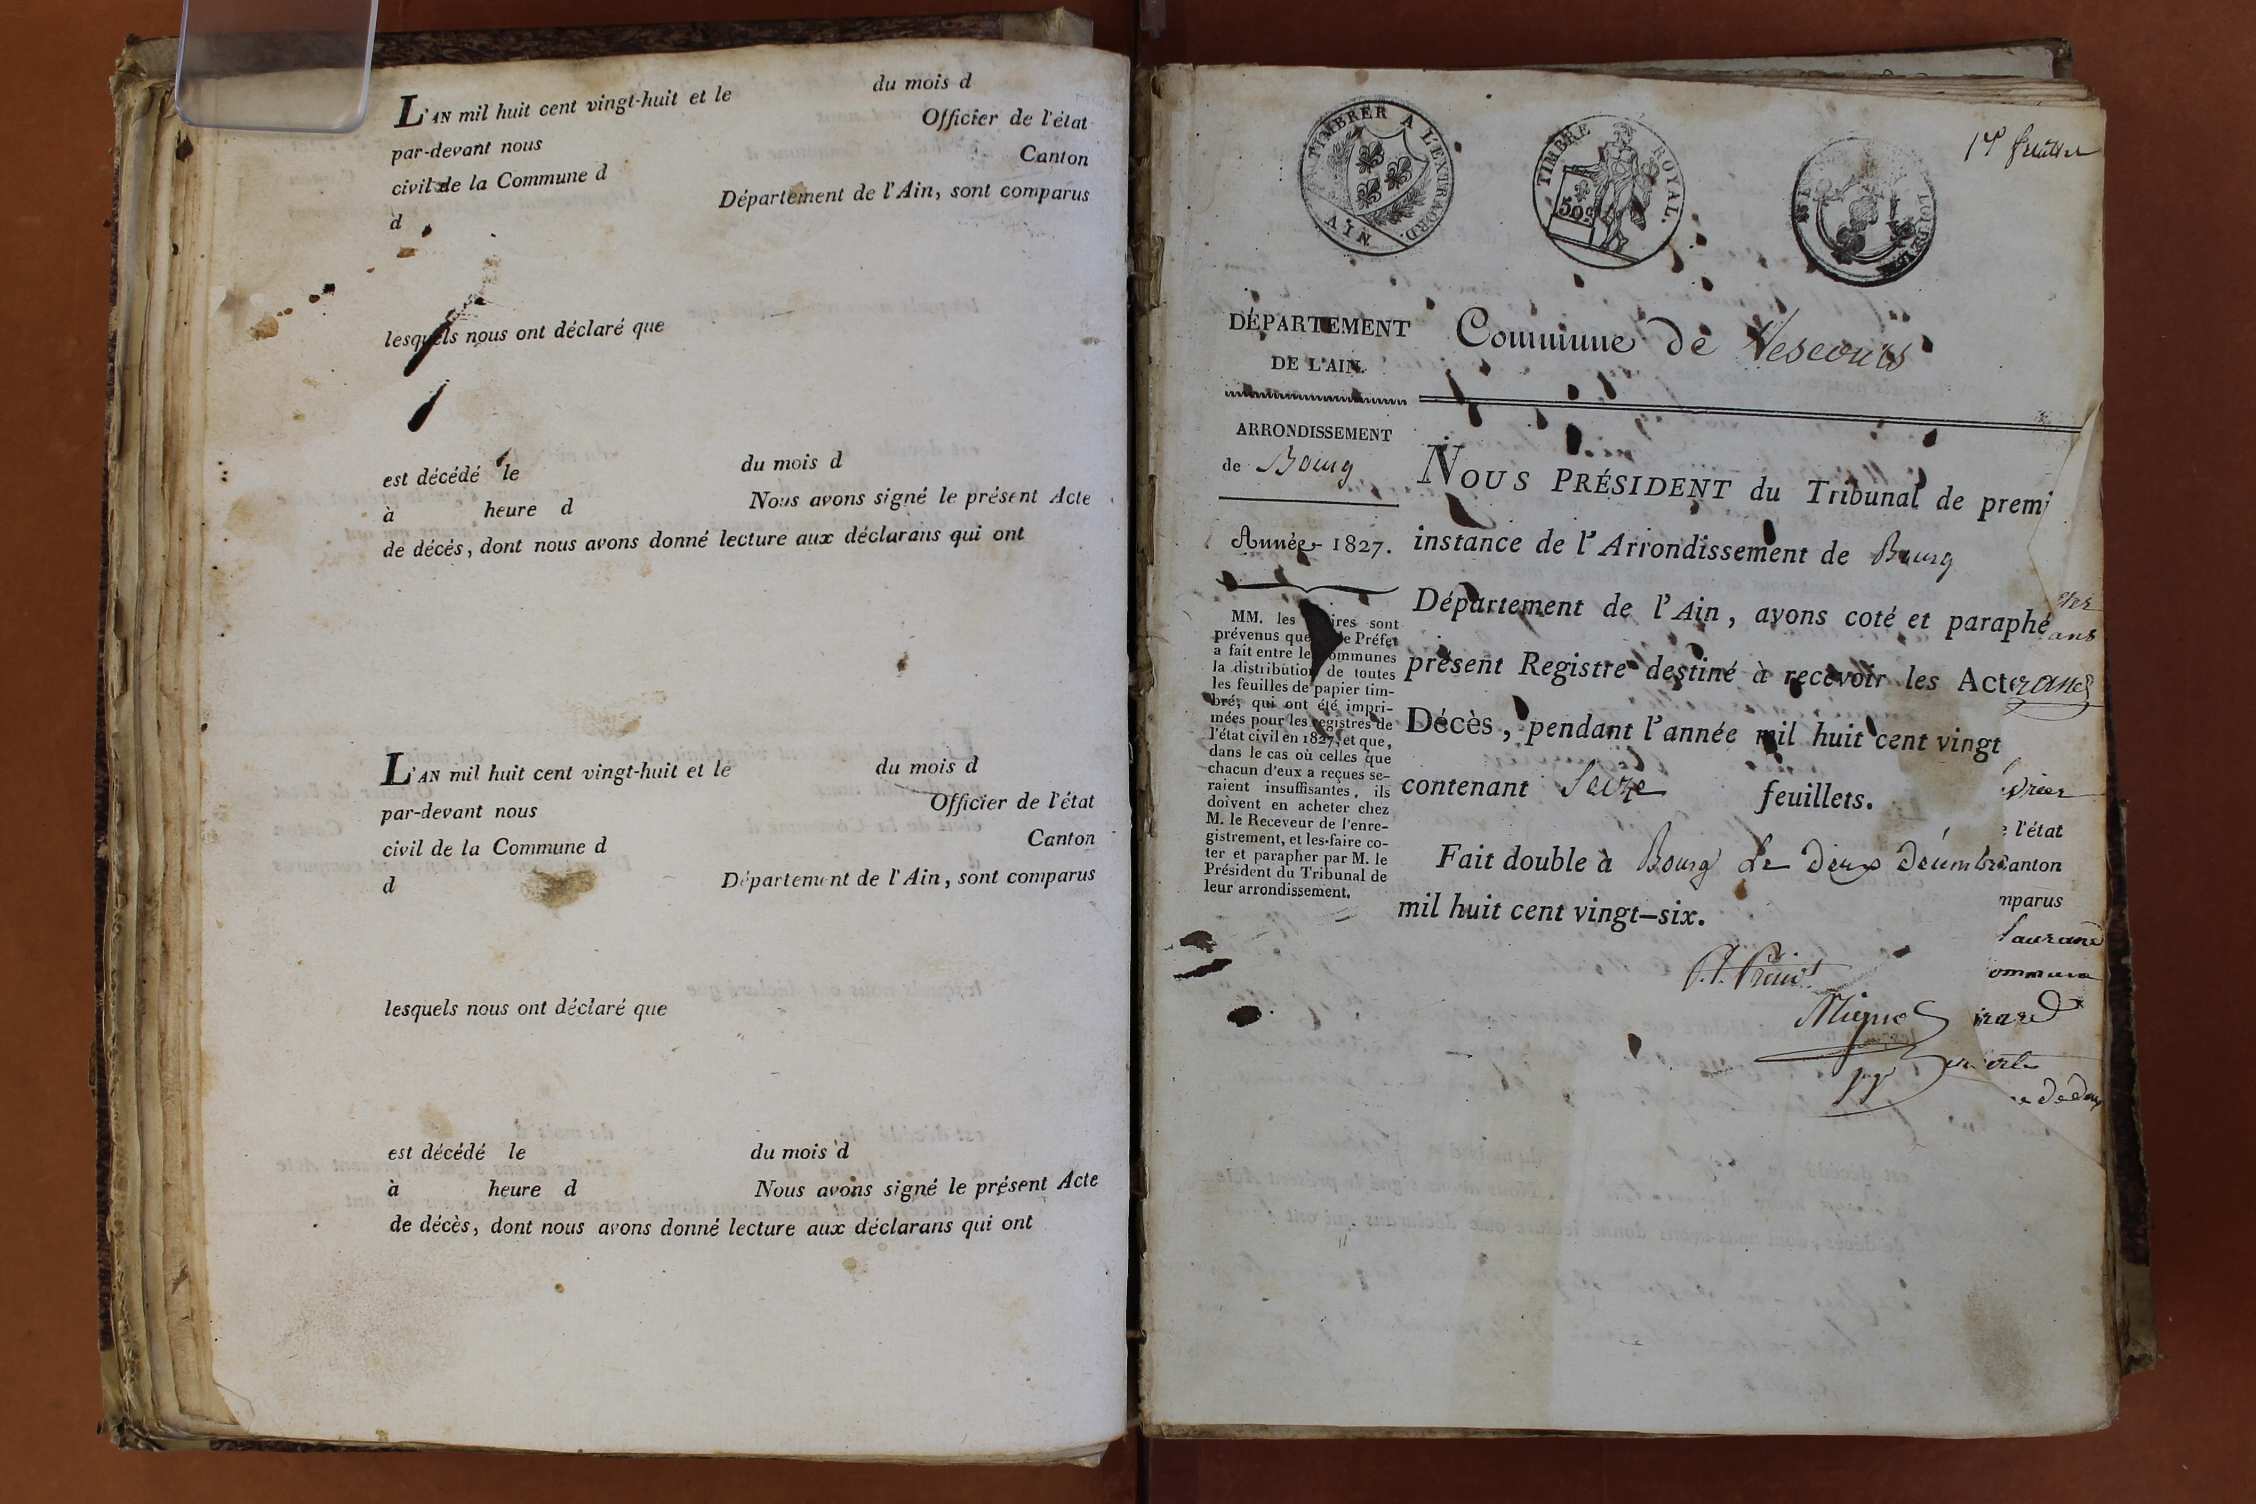 L'AN mil huit cent vingt-huit et le du mois d
par-devant nous Officier de l'état
civil de la Commune d Canton
d Département de l'Ain, sont comparus
lesquels nous ont déclaré que
est décédé le du mois d
à heure d Nous avons signé le présent Acte
de décés, dont nous avons donné lecture aux déclarans qui ont
L'AN mil huit cent vingt-huit et le du mois d
par-devant nous Officier de l'état
civil de la Commune d Canton
d Département de l'Ain, sont comparus
lesquels nous ont déclaré que
est décédé le du mois d
à heure d Nous avons signé le présent Acte
de décès, dont nous avons donné lecture aux déclarans qui ont
TIMBRER A L'EXTRAORD.
AIN
TIMBRE ROYAL.
50c
1er feuillet
DÉPARTEMENT
DE L'AIN.
Commune de Vescours
ARRONDISSEMENT
de Bourg
Année 1827.
MM. les ires sont
prévenus que le Préfet
a fait entre les communes
la distribution de toutes
les feuilles de papier tim-
bré, qui ont été impri-
mées pour les registres de
l'état civil en 1827, et que,
dans le cas où celles que
chacun d'eux a reçues se-
raient insuffisantes, ils
doivent en acheter chez
M. le Receveur de l'enre-
gistrement, et les faire co-
ter et parapher par M. le
Président du Tribunal de
leur arrondissement.
NOUS PRÉSIDENT du Tribunal de premi
instance de l'Arrondissement de Bourg
Département de l'Ain, avons coté et paraphé
présent Registre destiné à recevoir les Acte
Décès, pendant l'année mil huit cent vingt
contenant Seize feuillets.
Fait double à Bourg le deux décembre
mil huit cent vingt-six.
l'état
anton
mparus